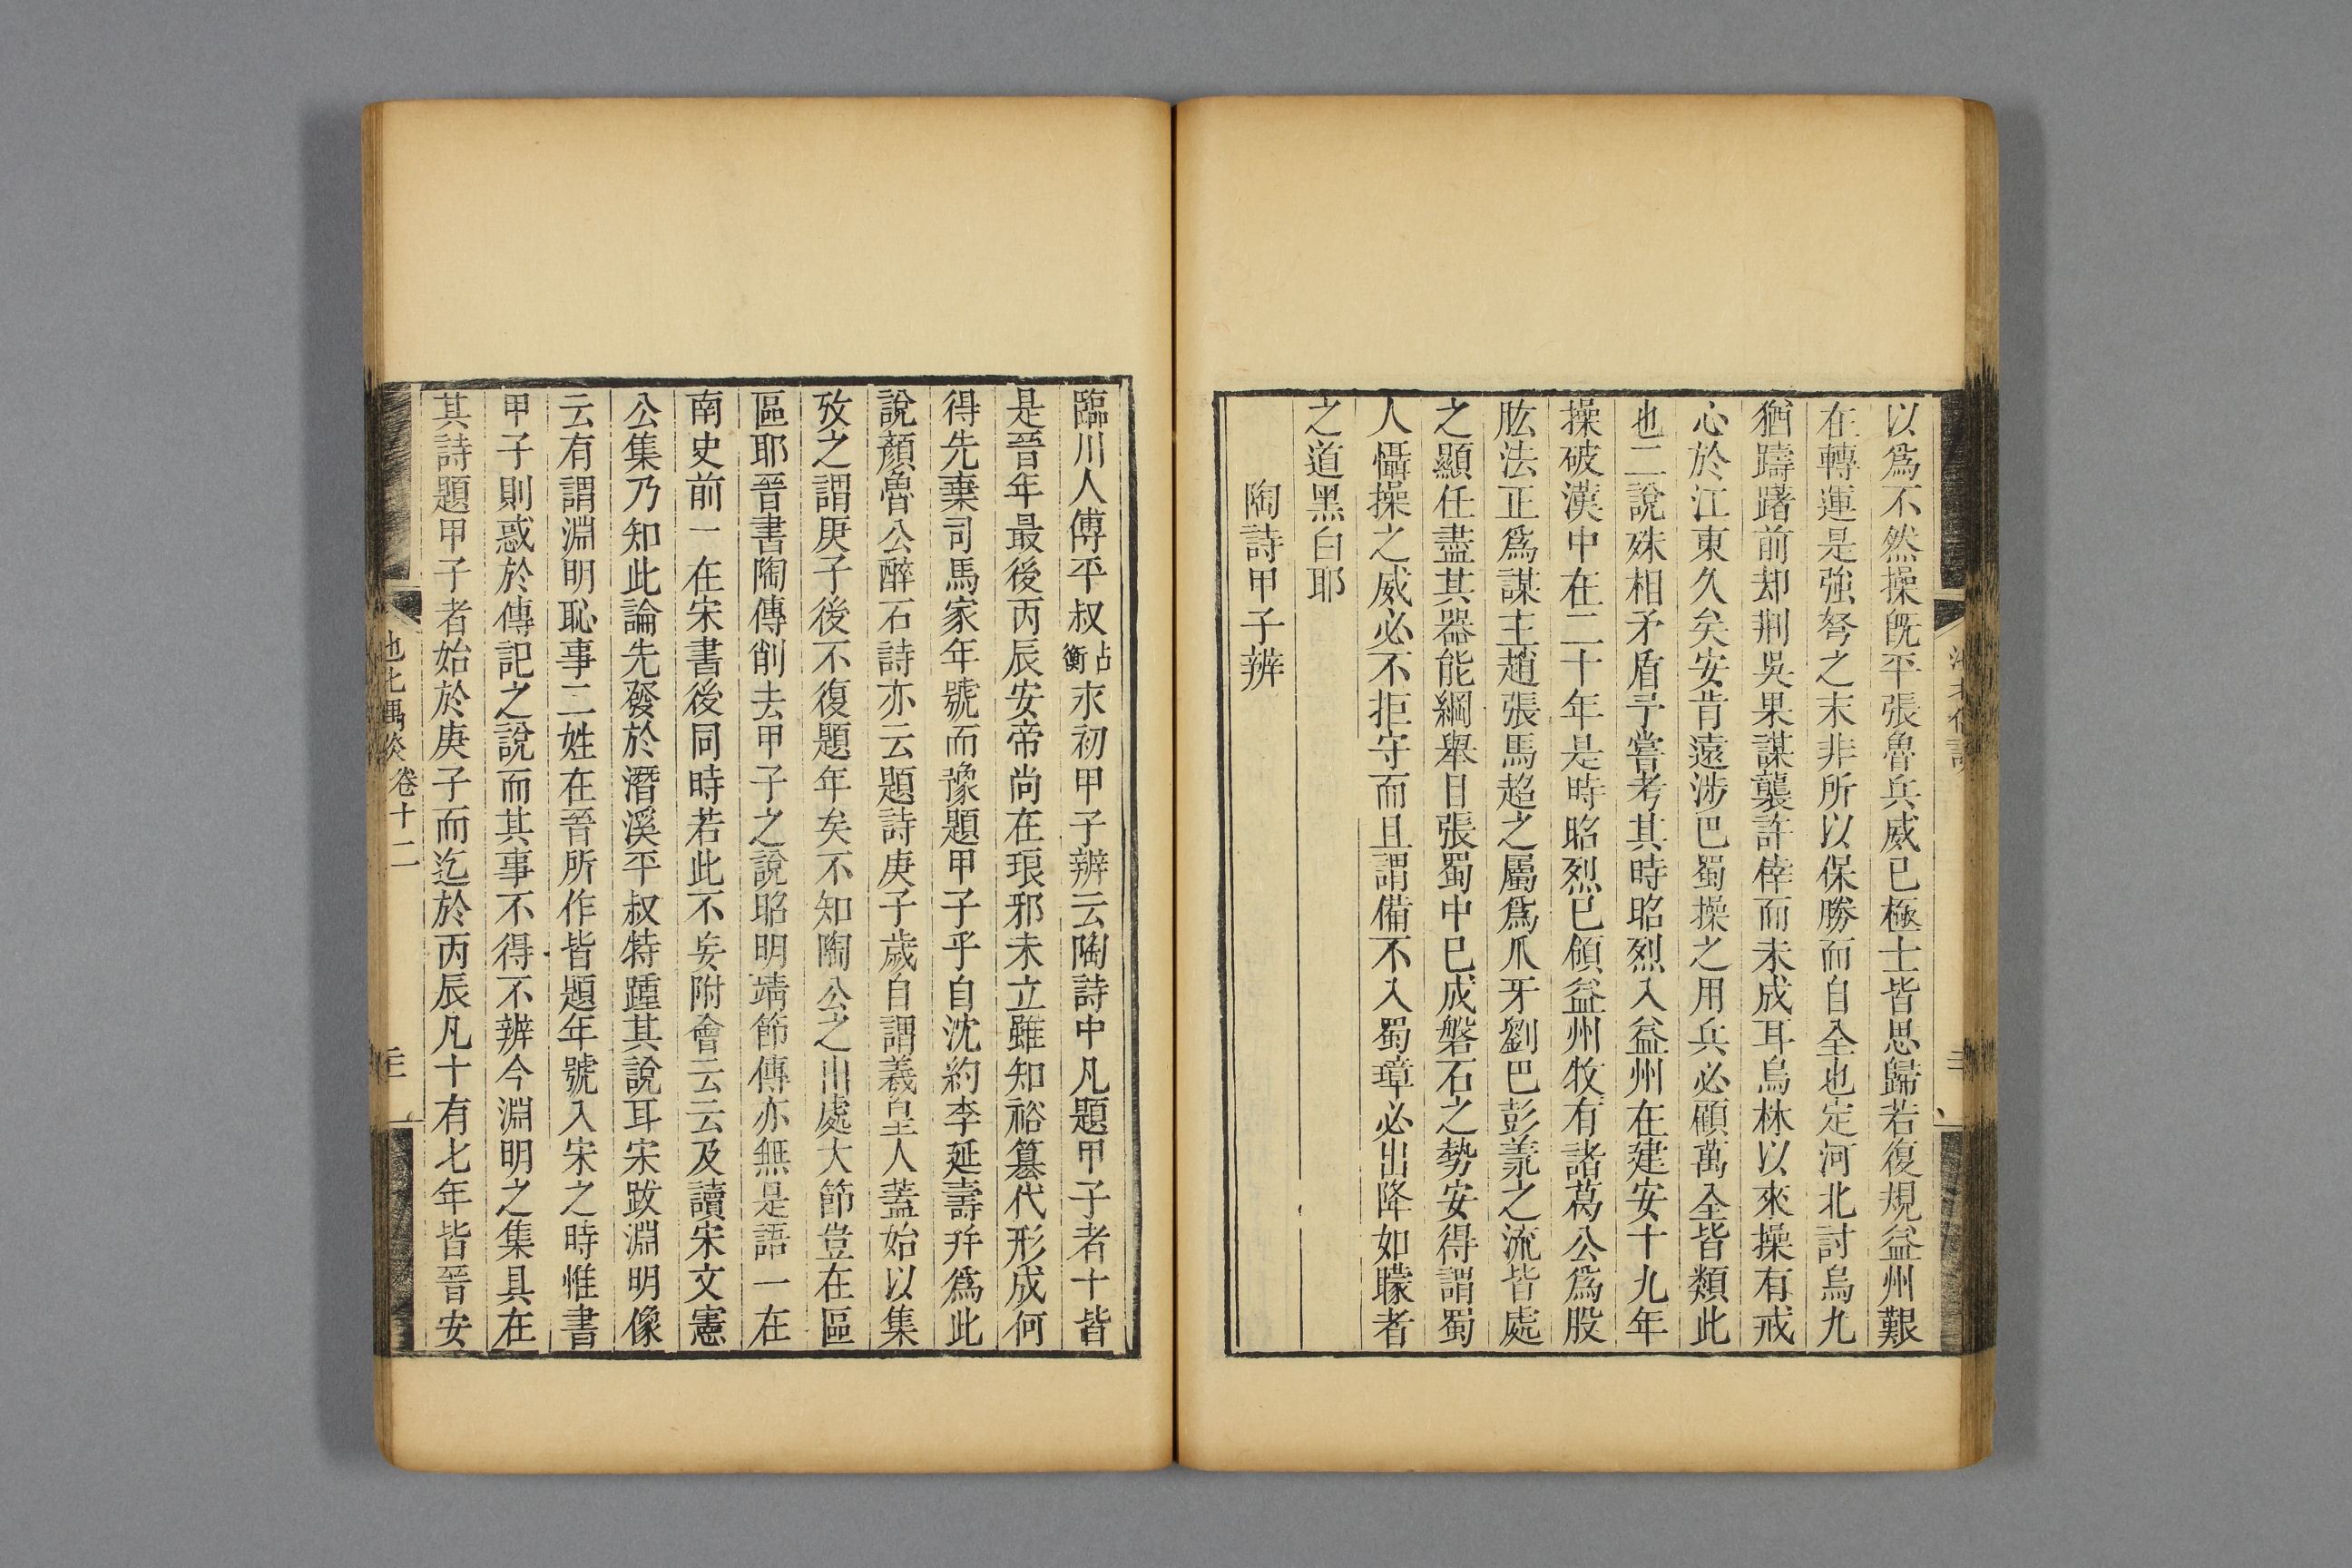 以爲不然操旣平張魯兵威已極士皆思歸若復規益州艱
在轉運是強弩之末非所以保勝而自全也定河北討烏九
猶躊躇前却荆吳果謀襲許倖而未成耳烏林以來操有戒
心於江東久矣安肯遠涉巴蜀操之用兵必顧萬全皆類此
也二說殊相矛盾予嘗考其時昭烈入益州在建安十九年
操破漢中在二十年是時昭烈已領益州牧有諸葛公爲股
肱法正爲謀主趙張馬超之屬爲爪牙劉巴彭羕之流皆處
之顯任盡其器能綱舉目張蜀中已成磐石之勢安得謂蜀
人懾操之威必不拒守而且謂備不入蜀璋必出降如矇者
之道黑白耶
陶詩甲子辨
臨川人傅平叔占衡永初甲子辨云陶詩中凡題甲子者十皆
是晉年最後丙辰安帝尚在琅邪未立雖知裕篡代形成何
得先棄司馬家年號而豫題甲子乎自沈約李延壽并爲此
說顏魯公醉石詩亦云題詩庚子歲自謂羲皇人蓋始以集
攷之謂庚子後不復題年矣不知陶公之出處大節豈在區
區耶晉書陶傳削去甲子之說昭明靖節傳亦無是語一在
南史前一在宋書後同時若此不妄附會云云及讀宋文憲
公集乃知此論先發於潛溪平叔特踵其說耳宋跋淵明像
云有謂淵明恥事二姓在晉所作皆題年號入宋之時惟書
甲子則惑於傳記之說而其事不得不辨今淵明之集具在
其詩題甲子者始於庚子而迄於丙辰凡十有七年皆晉安
池北偶談 卷十二